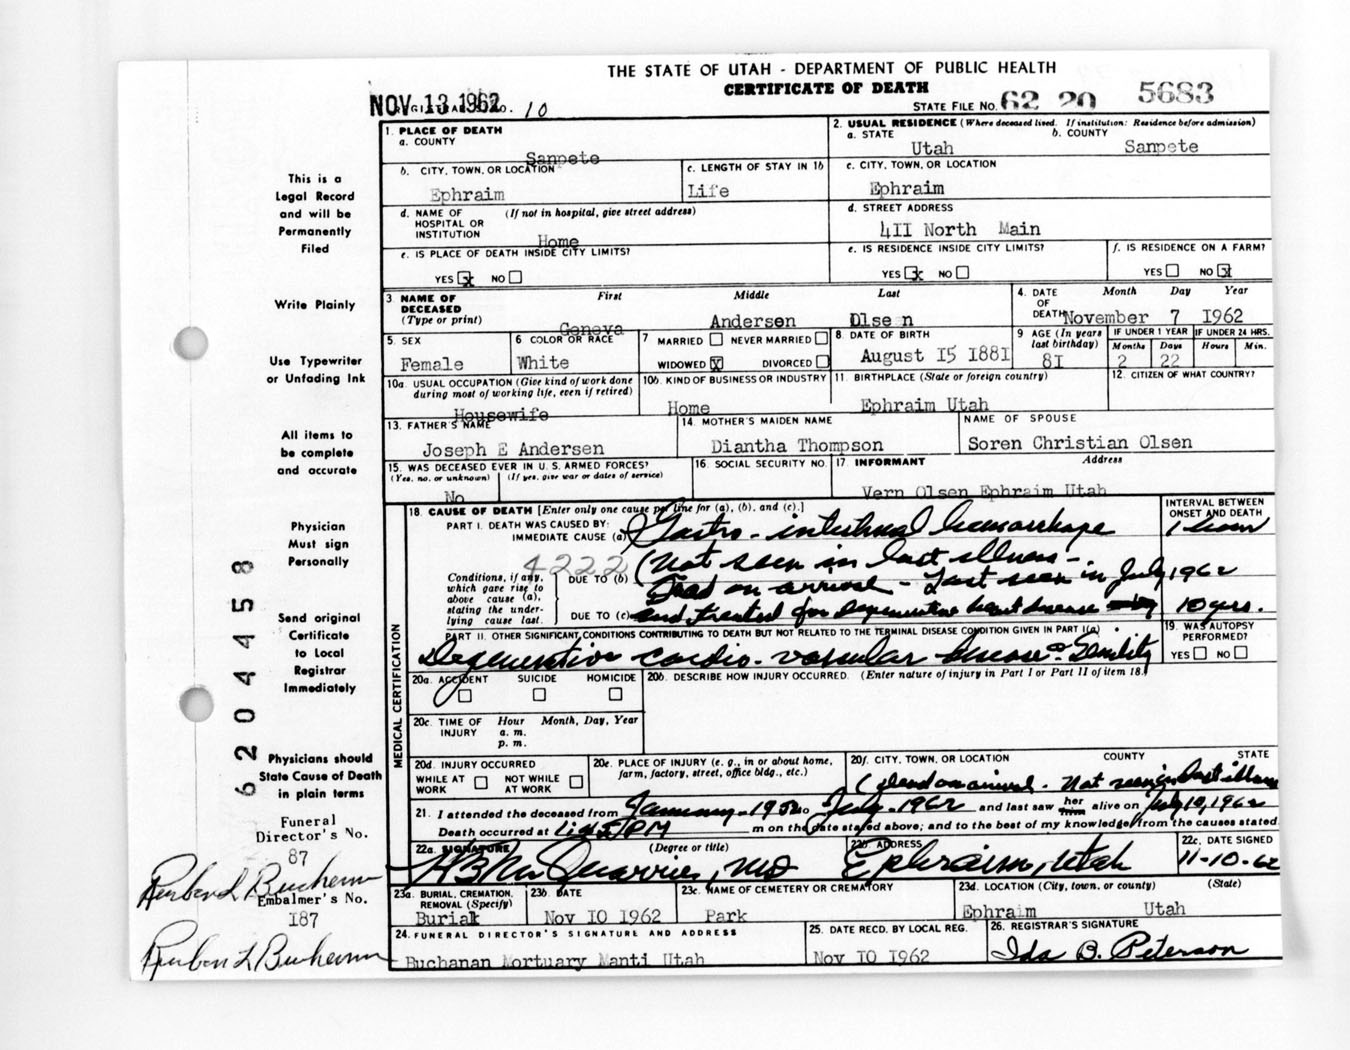 THE STATE OF UTAH - DEPARTMENT OF PUBLIC HEALTH
CERTIFICATE OF DEATH
NOV 13 1962 NO. 10
STATE FILE No. 62 20 5683
1. PLACE OF DEATH
a. COUNTY
Sanpete
2. USUAL RESIDENCE (Where deceased lived. If institution: Residence before admission)
a. STATE b. COUNTY
Utah Sanpete
b. CITY, TOWN, OR LOCATION
Ephraim
c. LENGTH OF STAY IN 1b
Life
c. CITY, TOWN, OR LOCATION
Ephraim
d. NAME OF HOSPITAL OR INSTITUTION (If not in hospital, give street address)
Home
d. STREET ADDRESS
4II North Main
e. IS PLACE OF DEATH INSIDE CITY LIMITS?
YES x NO
e. IS RESIDENCE INSIDE CITY LIMITS?
YES x NO
f. IS RESIDENCE ON A FARM?
YES NO x
3. NAME OF DECEASED (Type or print) First Middle Last
Geneva Andersen Olse n
4. DATE OF DEATH Month Day Year
November 7 I962
5. SEX
Female
6. COLOR OR RACE
White
7. MARRIED NEVER MARRIED
WIDOWED X DIVORCED
8. DATE OF BIRTH
August I5 I88I
9. AGE (In years last birthday)
8I
IF UNDER 1 YEAR IF UNDER 24 HRS.
Months Days Hours Min.
2 22
10a. USUAL OCCUPATION (Give kind of work done during most of working life, even if retired)
Housewife
10b. KIND OF BUSINESS OR INDUSTRY
Home
11. BIRTHPLACE (State or foreign country)
Ephraim Utah
12. CITIZEN OF WHAT COUNTRY?
13. FATHER'S NAME
Joseph E Andersen
14. MOTHER'S MAIDEN NAME
Diantha Thompson
NAME OF SPOUSE
Soren Christian Olsen
15. WAS DECEASED EVER IN U. S. ARMED FORCES?
(Yes, no, or unknown) (If yes, give war or dates of service)
No
16. SOCIAL SECURITY NO.
17. INFORMANT Address
Vern Olsen Ephraim Utah
18. CAUSE OF DEATH [Enter only one cause per line for (a), (b), and (c).]
PART I. DEATH WAS CAUSED BY:
IMMEDIATE CAUSE (a) Gastro-intestinal hemorrhage
INTERVAL BETWEEN ONSET AND DEATH
1 hour
4222
Conditions, if any, which gave rise to above cause (a), stating the underlying cause last.
DUE TO (b) (Not seen in last illness -
Dead on arrival - Last seen in July 1962
DUE TO (c) and treated for Degenerative heart disease
10 yrs.
PART II. OTHER SIGNIFICANT CONDITIONS CONTRIBUTING TO DEATH BUT NOT RELATED TO THE TERMINAL DISEASE CONDITION GIVEN IN PART I(a)
Degenerative cardio-vascular disease Senility
19. WAS AUTOPSY PERFORMED?
YES NO
MEDICAL CERTIFICATION
20a. ACCIDENT SUICIDE HOMICIDE
20b. DESCRIBE HOW INJURY OCCURRED. (Enter nature of injury in Part I or Part II of item 18.)
20c. TIME OF INJURY Hour Month, Day, Year
a. m.
p. m.
20d. INJURY OCCURRED
WHILE AT WORK NOT WHILE AT WORK
20e. PLACE OF INJURY (e. g., in or about home, farm, factory, street, office bldg., etc.)
20f. CITY, TOWN, OR LOCATION COUNTY STATE
(dead on arrival. Not seen in last illness
21. I attended the deceased from January-1950 to July-1962 and last saw her him alive on July 10, 1962
Death occurred at PM m on the date stated above; and to the best of my knowledge, from the causes stated.
22a. SIGNATURE (Degree or title)
H B MacQuarrie, MD
22b. ADDRESS
Ephraim, Utah
22c. DATE SIGNED
11-10-62
23a. BURIAL, CREMATION, REMOVAL (Specify)
Burial
23b. DATE
Nov IO I962
23c. NAME OF CEMETERY OR CREMATORY
Park
23d. LOCATION (City, town, or county) (State)
Ephraim Utah
24. FUNERAL DIRECTOR'S SIGNATURE AND ADDRESS
Buchanan Mortuary Manti Utah
25. DATE RECD. BY LOCAL REG.
Nov IO I962
26. REGISTRAR'S SIGNATURE
Ida B. Peterson
This is a
Legal Record
and will be
Permanently
Filed
Write Plainly
Use Typewriter
or Unfading Ink
All items to
be complete
and accurate
Physician
Must sign
Personally
Send original
Certificate
to Local
Registrar
Immediately
Physicians should
State Cause of Death
in plain terms
Funeral
Director's No.
87
Embalmer's No.
I87
6204458